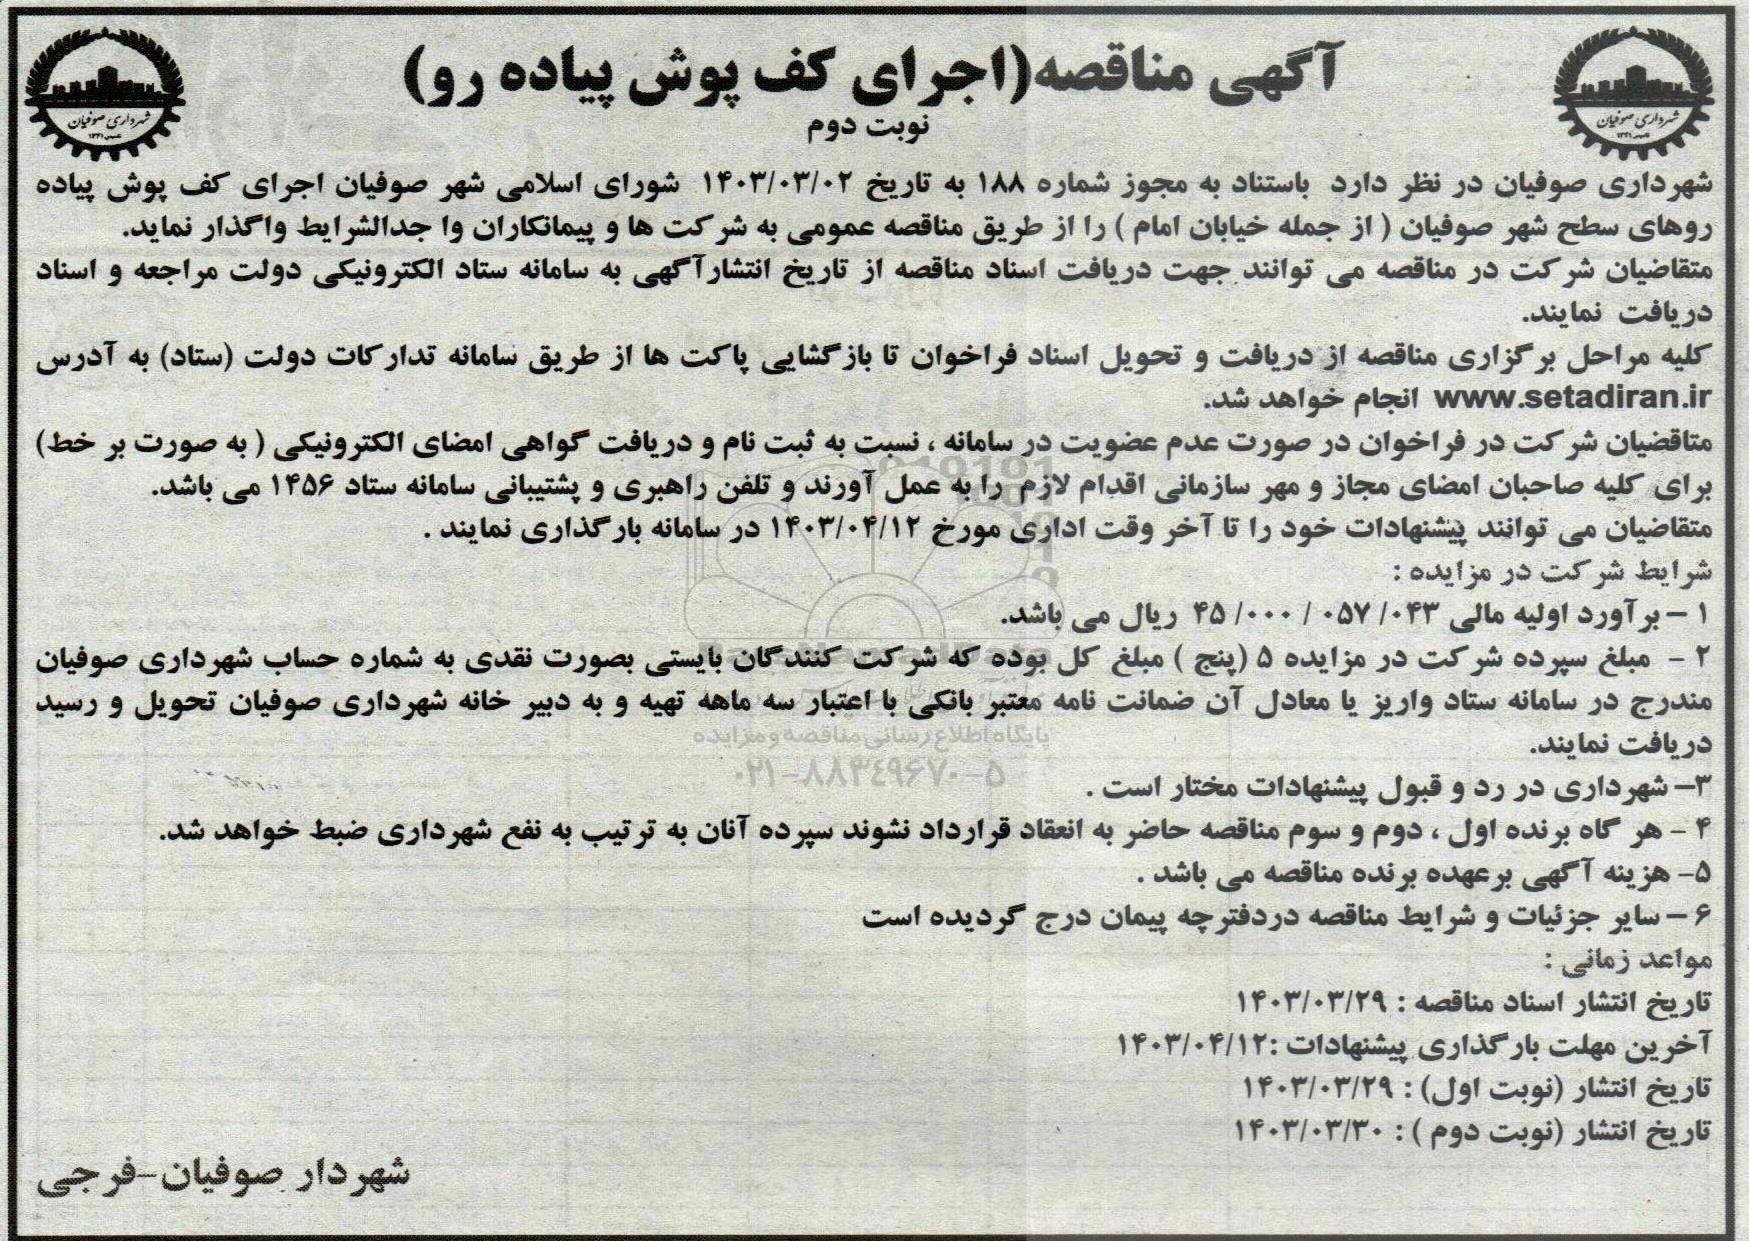 آگهی مناقصه(اجرای کف پوش پیاده رو)
نوبت دوم
شهرداری صوفیان
شهرداری صوفیان
شهرداری صوفیان در نظر دارد باستناد به مجوز شماره ۱۸۸ به تاریخ ۱۴۰۳/۰۳/۰۲ شورای اسلامی شهر صوفیان اجرای کف پوش پیاده
روهای سطح شهر صوفیان ( از جمله خیابان امام ) را از طریق مناقصه عمومی به شرکت ها و پیمانکاران وا جدالشرایط واگذار نماید.
متقاضیان شرکت در مناقصه می توانند جهت دریافت اسناد مناقصه از تاریخ انتشارآگهی به سامانه ستاد الکترونیکی دولت مراجعه و اسناد
دریافت نمایند.
کلیه مراحل برگزاری مناقصه از دریافت و تحویل اسناد فراخوان تا بازگشایی پاکت ها از طریق سامانه تدارکات دولت (ستاد) به آدرس
www.setadiran.ir انجام خواهد شد.
متاقضیان شرکت در فراخوان در صورت عدم عضویت در سامانه ، نسبت به ثبت نام و دریافت گواهی امضای الکترونیکی ( به صورت بر خط)
برای کلیه صاحبان امضای مجاز و مهر سازمانی اقدام لازم را به عمل آورند و تلفن راهبری و پشتیبانی سامانه ستاد ۱۴۵۶ می باشد.
متقاضیان می توانند پیشنهادات خود را تا آخر وقت اداری مورخ ۱۴۰۳/۰۴/۱۲ در سامانه بارگذاری نمایند .
شرایط شرکت در مزایده :
۱ – برآورد اولیه مالی ۰۴۳/ ۰۵۷ / ۰۰۰/ ۴۵ ریال می باشد.
۲ - مبلغ سپرده شرکت در مزایده ۵ (پنج ) مبلغ کل بوده که شرکت کنندگان بایستی بصورت نقدی به شماره حساب شهرداری صوفیان
مندرج در سامانه ستاد واریز یا معادل آن ضمانت نامه معتبر بانکی با اعتبار سه ماهه تهیه و به دبیر خانه شهرداری صوفیان تحویل و رسید
پایگاه اطلاع رسانی مناقصه و مزایده
دریافت نمایند.
۰۲۱-۸۸۳۴۹۶۷۰-۵
۳– شهرداری در رد و قبول پیشنهادات مختار است .
۴ - هر گاه برنده اول ، دوم و سوم مناقصه حاضر به انعقاد قرارداد نشوند سپرده آنان به ترتیب به نفع شهرداری ضبط خواهد شد.
۵- هزینه آگهی برعهده برنده مناقصه می باشد .
۶ – سایر جزئیات و شرایط مناقصه دردفترچه پیمان درج گردیده است
مواعد زمانی :
تاریخ انتشار اسناد مناقصه : ۱۴۰۳/۰۳/۲۹
آخرین مهلت بارگذاری پیشنهادات :۱۴۰۳/۰۴/۱۲
تاریخ انتشار (نوبت اول) : ۱۴۰۳/۰۳/۲۹
تاریخ انتشار (نوبت دوم ) : ۱۴۰۳/۰۳/۳۰
شهردار صوفیان-فرجی